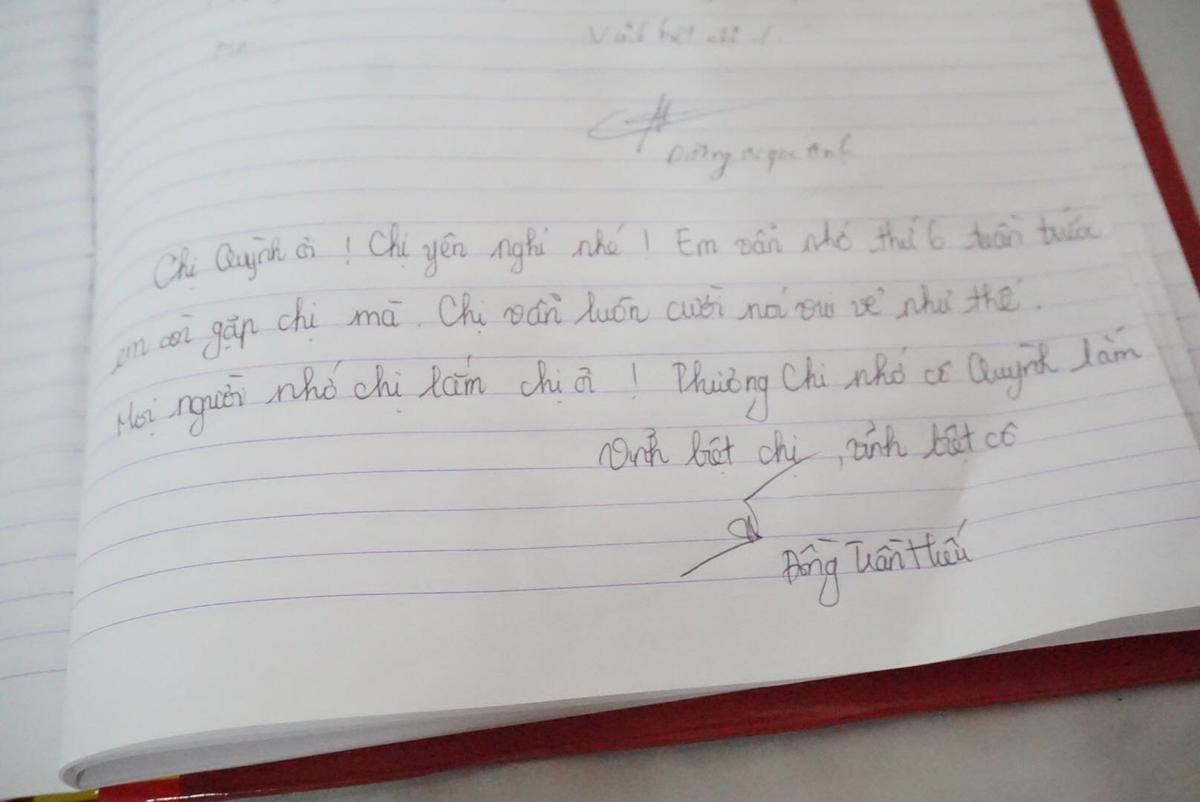 Chị Quỳnh ơi ! Chị yên nghỉ nhé ! Em vẫn nhớ thứ 6 tuần trước
em còn gặp chị mà. Chị vẫn luôn cười nói vui vẻ như thế.
Mọi người nhớ chị lắm chị ơi ! Phương Chi nhớ cô Quỳnh lắm
Vĩnh biệt chị, vĩnh biệt cô
Đồng Trần Hiếu